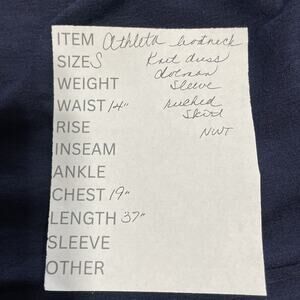 ITEM Athleta boatneck
SIZE S Knit dress
WEIGHT dolman
sleeve
WAIST 14" ruched
skirt
RISE NWT
INSEAM
ANKLE
CHEST 19"
LENGTH 37"
SLEEVE
OTHER